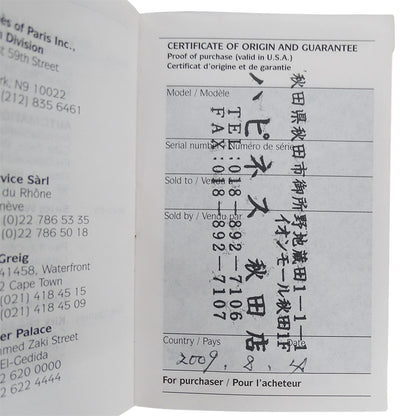 es of Paris Inc.,
Division
59th Street
rk, N9 10022
(212) 835 6461
vice Sàrl
du Rhône
nève
(0)22 786 53 35
(0)22 786 50 30
Greig
41458, Waterfront
Cape Town
(021) 418 45 15
(021) 418 45 09
er Palace
med Zaki Street
El-Gedida
2 620 0000
2 622 4444
CERTIFICATE OF ORIGIN AND GUARANTEE
Proof of purchase (valid in U.S.A.)
Certificat d'origine et de garantie
Model / Modèle
Serial number / Numéro de série
Sold to / Vendu
Sold by / Vendu par
秋田県秋田市御所野地蔵田1-1-1
イオンモール秋田1F
ハピネス 秋田店
TEL:018-892-7106
FAX:018-892-7107
Country / Pays
Date
2009. 8.
For purchaser / Pour l'acheteur